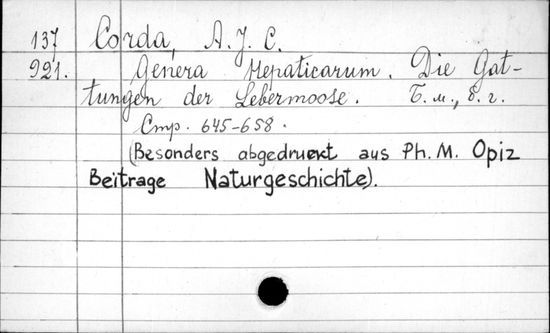 137 Corda, A. J. C.
921. Genera Hepaticarum. Die Gat-
tungen der Lebermoose. Б. м., б. г.
Стр. 645-658.
(Besonders abgedruckt aus Ph. M. Opiz
Beitrage Naturgeschichte).